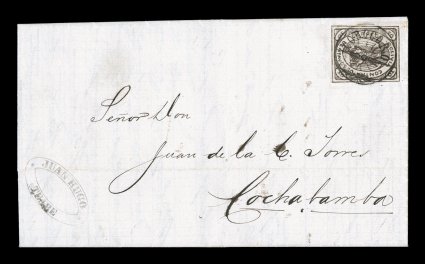 Señor Don
Juan de la C. Torres
Cochabamba
JUAN HUGO